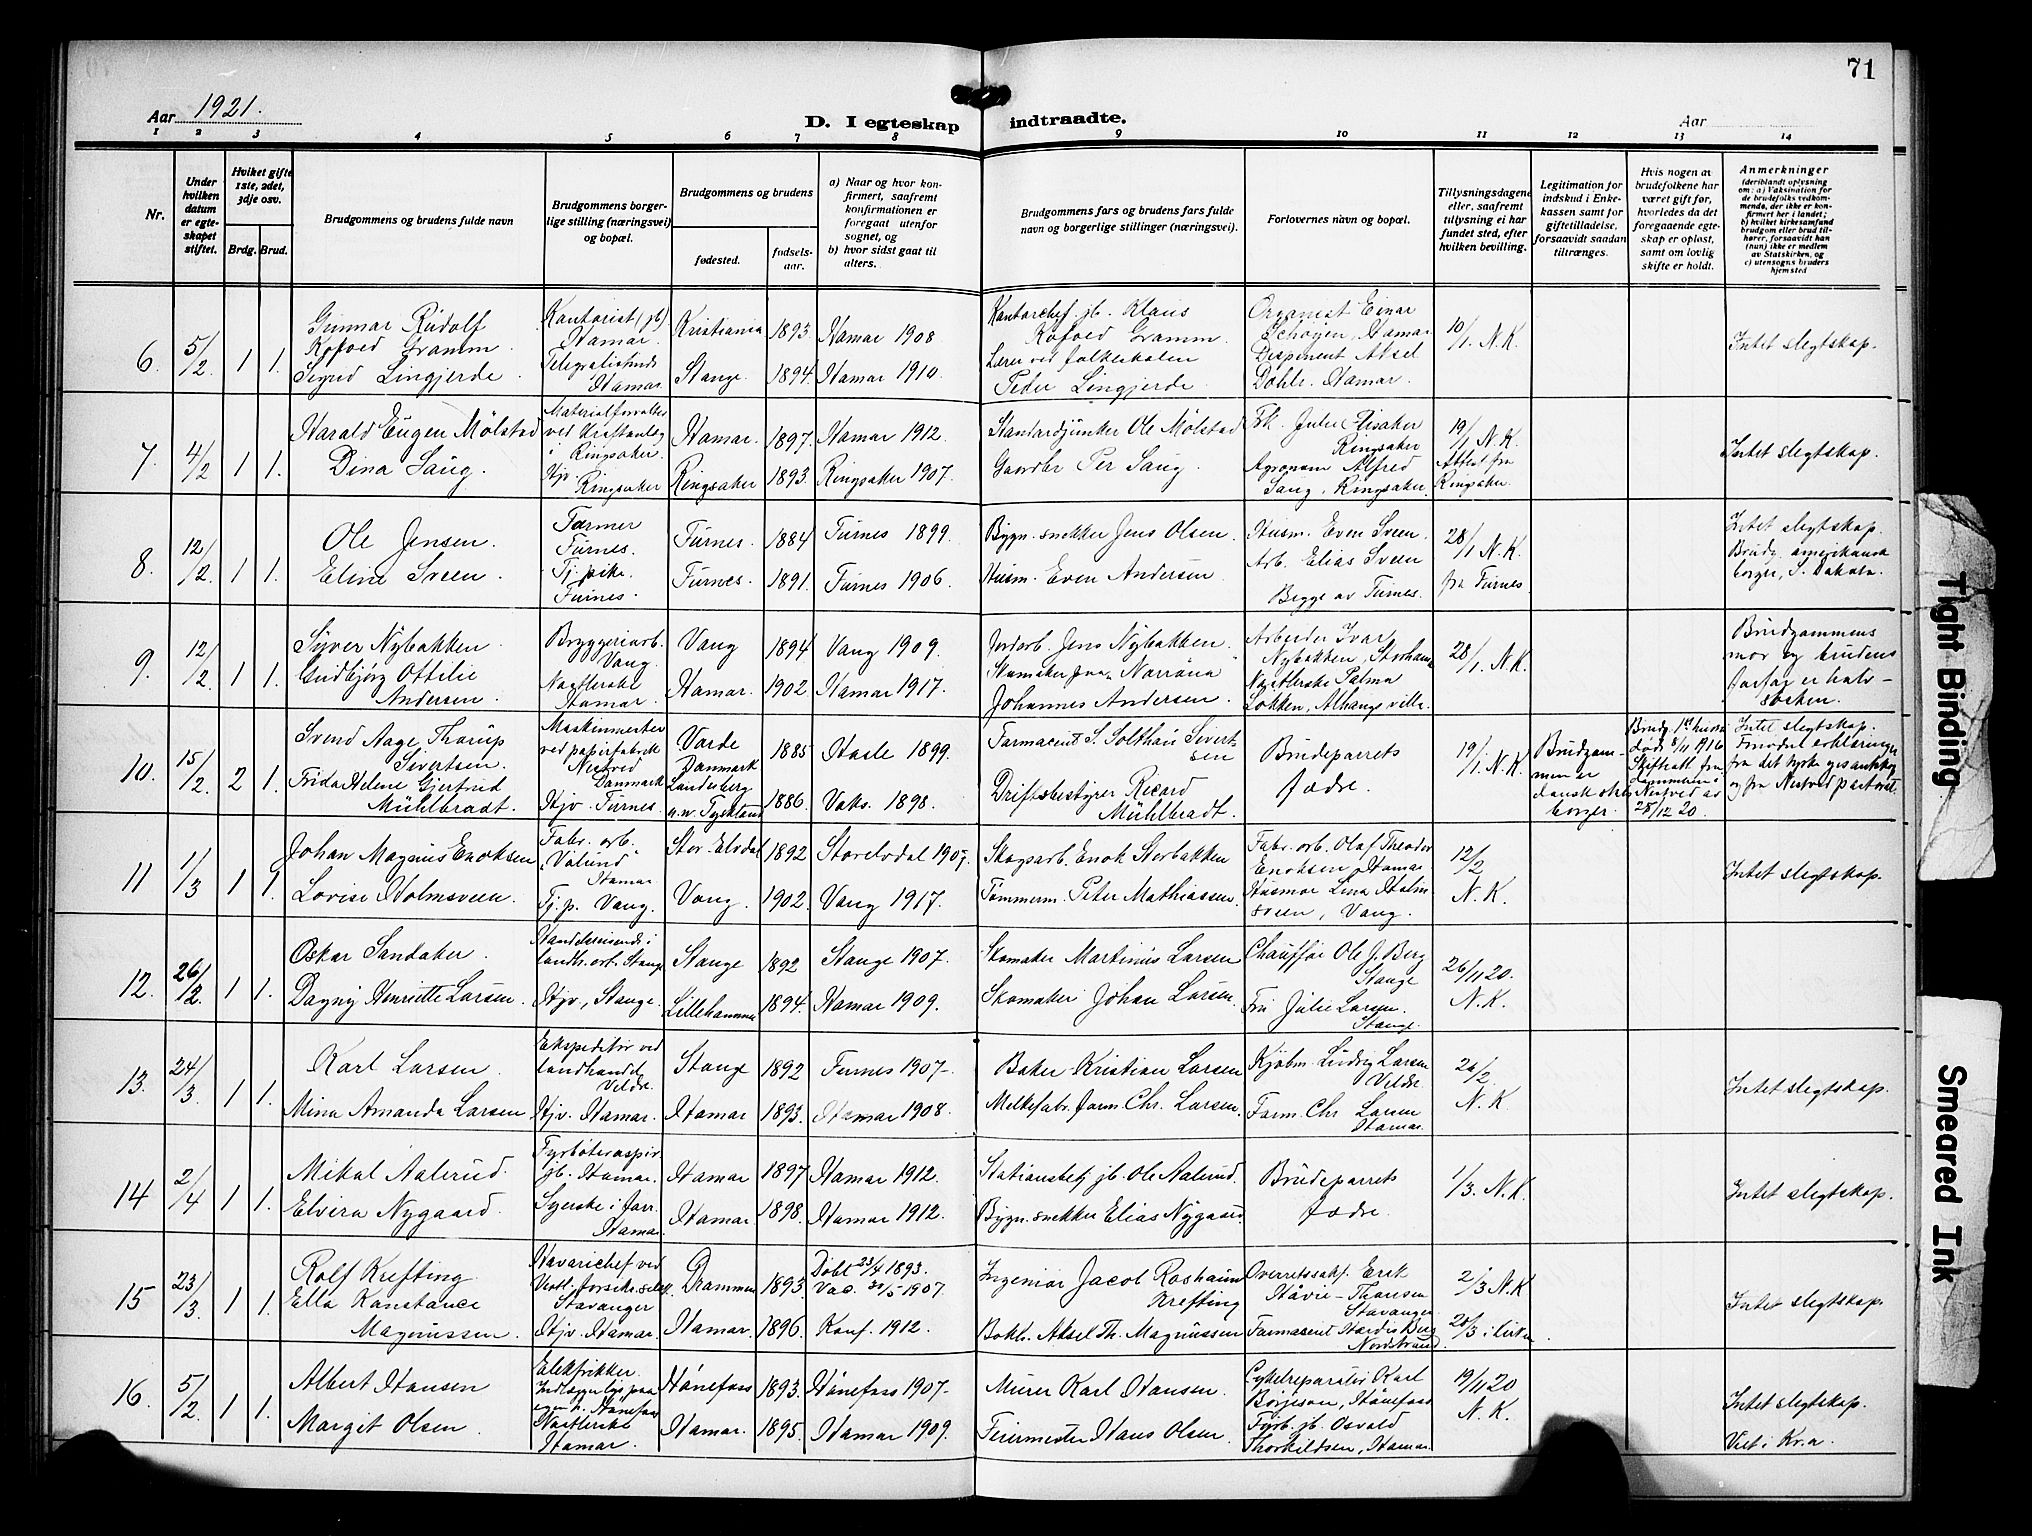 71
Aar 1921.
D. I egteskap indtraadte.
Aar
1 2 3 4 5 6 7 8 9 10 11 12 13 14
Nr.
Under hvilken datum er egteskapet stiftet.
Hvilket gifte 1ste, 2det, 3dje osv.
Brdg. Brud.
Brudgommens og brudens fulde navn
Brudgommens borgerlige stilling (næringsvei) og bopæl.
Brudgommens og brudens
fødested.
fødselsaar.
a) Naar og hvor konfirmert, saafremt konfirmationen er foregaat utenfor sognet, og
b) hvor sidst gaat til alters.
Brudgommens fars og brudens fars fulde navn og borgerlige stillinger (næringsvei).
Forlovernes navn og bopæl.
Tillysningsdagene eller, saafremt tillysning ei har fundet sted, efter hvilken bevilling.
Legitimation for indskud i Enkekassen samt for giftetilladelse, forsaavidt saadan tiltrænges.
Hvis nogen av brudefolkene har været gift før, hvorledes da det foregaaende egteskap er opløst, samt om lovlig skifte er holdt.
Anmerkninger
(deriblandt oplysning om: a) Vaksination for de brudefolks vedkommende, der ikke er konfirmert her i landet; b) hvilket kirkesamfund brudgom eller brud tilhører, forsaavidt han (hun) ikke er medlem av Statskirken, og c) utensogns bruders hjemsted
6. 5/2 1 1. Gunnar Rudolf Kofoed Gramm Kontorist (jb) Hamar. Kristiania 1893 Hamar 1908 Kontorchef jb. Klaus Kofoed Gramm. Organist Einar Schøyen, Hamar 10/1. N.K. Intet slegtskap.
Sigrid Lingjerde. Hamar. Stange. 1894. Hamar 1910. Lærer ved folkeskolen Peder Lingjerde. Disponent Aksel Dohle. Hamar.
7. 4/2 1 1. Harald Eugen Mølstad Materialforvalter ved Kraftanlæg i Ringsaker. Hamar. 1897. Hamar 1912. Standardjunker Ole Mølstad Frk. Julie Flisaker Ringsaker 19/1 N.K. Attest fra Ringsaker. Intet slegtskap.
Dina Saug. Hjv. Ringsaker Ringsaker 1893. Ringsaker 1907. Gaardbr. Per Saug. Agronom Alfred Saug, Ringsaker.
8. 12/2 1 1. Ole Jensen. Farmer Furnes. Furnes. 1884 Furnes 1899. Bygn. snekker Jens Olsen. Husm. Even Sveen. 28/1 N.K. fra Furnes Intet slegtskap. Brudg. amerikansk borger, S. Dakota.
Eline Sveen. Tj.pike. Furnes. Furnes. 1891. Furnes 1906. Husm. Even Andersen. Arb. Elias Sveen Begge av Furnes.
9. 12/2 1 1. Syver Nybakken. Bryggeriarb. Vang. Vang 1894 Vang 1909. Jordarb. Jens Nybakken. Arbeider Ivar Nybakken, Storham. 28/1. N.K. Brudgommens mor og brudens farfar er halvsøsken.
Gudbjørg Ottilie Andersen. Hamar. Hamar. 1902. Hamar 1917. Skomaker Johannes Andersen. Palma Løkken,
10. 15/2 2 1. Svend Aage Thorup Sivertsen. Maskinmester ved papirfabrik Nestved Danmark Varde Danmark 1885 Hasle 1899. Farmaceut S. Solthau Sivertsen Brudeparrets fædre. 19/1. N.K. Brudgommen er dansk statsborger. Brudg. 1ste hustru død 8/11 1916 Skifteatt. fra Nestved av 28/12 20. Intet slegtskap.
Frida Helene Gjertrud Mühlbradt. Hjv. Furnes. Landsberg a.w. Tyskland 1886. Vaks. 1898. Driftsbestyrer Ricard Mühlbradt.
11 1/3 1 1. Johan Magnus Enoksen Fabr. arb. "Vølund" Hamar Stor-Elvdal 1892 Storelvdal 1907. Skogsarb. Enok Storbakken Fabr. arb. Olaf Theodor Enoksen, Hamar 12/2 N.K. Intet slegtskap.
Lovise Holmsveen. Tj.p. Vang. Vang. 1902. Vang 1917. Tømmerm. Peter Mathiassen. Husmor Lina Holmsveen, Vang.
12. 26/2. 1 1. Oskar Sandaker. Handelsreisende i landh. art. Stange Stange 1892 Stange 1907. Skomaker Martinus Larsen Chauffør Ole J. Berg Stange 26/11 20. N.K.
Dagny Henriette Larsen. Hjv., Stange. Lillehammer 1894. Hamar 1909. Skomaker Johan Larsen. Fru Julie Larsen. Stange.
13. 24/3. 1 1. Karl Larsen. Ekspeditør ved landhandel, Veldre. Stange 1892 Furnes 1907. Baker Kristian Larsen Kjøbm. Ludvig Larsen Veldre 26/2. N.K Intet slegtskap.
Mina Amanda Larsen Hjv. Hamar. Hamar 1893. Hamar 1908. Melkefabr. form. Chr. Larsen. Form. Chr. Larsen Hamar.
14 2/4 1 1. Mikal Aalerud. Fyrbøteraspir. jb. Hamar. Hamar 1897 Hamar 1912. Stationsbetj. jb. Ole Aalerud. Brudeparrets fædre. 1/3. N.K. Intet slegtskap.
Elvira Nygaard. Syerske i forr. Hamar. Hamar. 1898. Hamar 1912. Bygn. snekker Elias Nygaard.
15 23/3. 1 1. Rolf Krefting. Havarichef ved Vestl. forsikr.selsk. Stavanger Drammen 1893 Døbt 23/4 1893. Vac. 30/5 1907. Ingeniør Jacob Roshauw Krefting Overretssakf. Erik Håvie-Thoresen Stavanger. 2/3 N.K Intet slegtskap.
Ella Konstance Magnussen. Hjv. Hamar. Hamar. 1896. Konf. 1912. Bokh. Aksel Th. Magnussen Farmaceut Hærdis Berg Nordstrand. 20/3 i kirken.
16. 5/2. 1 1. Albert Hansen Elektrikker. Hønefoss Hønefoss 1893. Hønefoss 1907. Murer Karl Hansen. Cykelreparatør Karl Børjeson, Hønefoss 19/11 20 N.K. Intet slegtskap. Viet i Kr.a.
Margit Olsen. Hamar. Hamar. 1895. Hamar 1909. Feiermester Hans Olsen. Fyrb. jb. Osvald Thorkildsen, Hamar.
Tight Binding
Smeared Ink